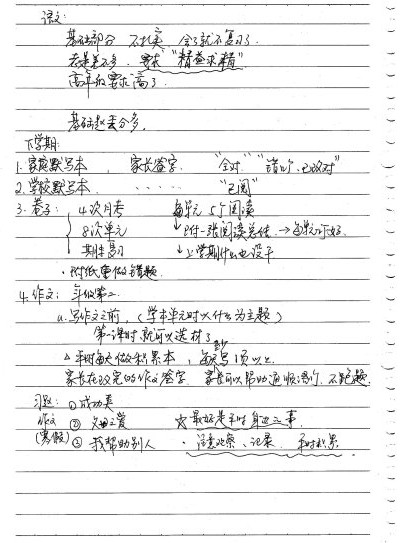 语文:
基础部分 不扎实 会了就不复习了.
差不多. 要求 "精益求精"
高年级要求高了.
基础题丢分多.
下学期:
1. 家庭默写本, 家长签字. "全对" "错n个, 已改对"
2. 学校默写本. ...... "已阅"
3. 卷子: 4次月考 每单元5个阅读
8次单元 ↓附一张阅读总结 → 每单元订好.
期末复习 ↓上学期什么也没干
· 附纸重做错题.
4. 作文: 年级第二.
a. 写作文之前, (学本单元时以什么为主题)
第一课时就可以选材了
△ 平时每天做积累本, 每天至少写1项以上.
家长在改完的作文签字. 家长可以帮助通顺语句, 不跑题.
习题: ① 成功类
作文 ② 父母之爱 ☆ 最好是平时身边之事.
(寒假) ③ 我帮助别人 · 注意观察、记录. 平时积累.